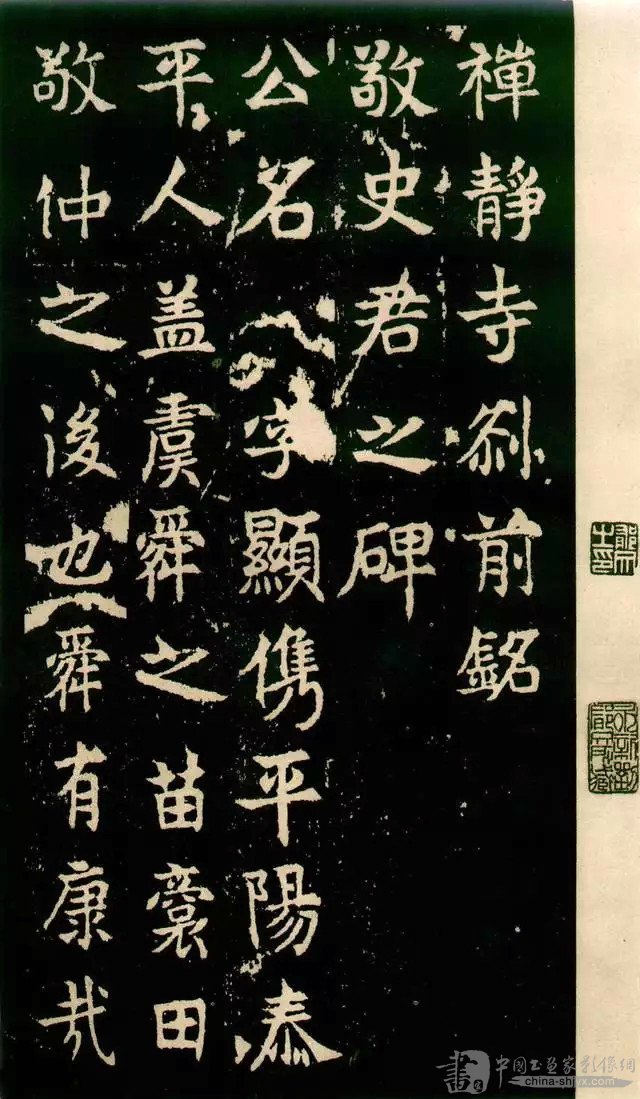 禪靜寺刹前銘
敬史君之碑
公名字顯儁平陽泰
平人盖虞舜之苗裔田
敬仲之後也舜有康哉
書 中國书画家影像網
china-shjyx.com